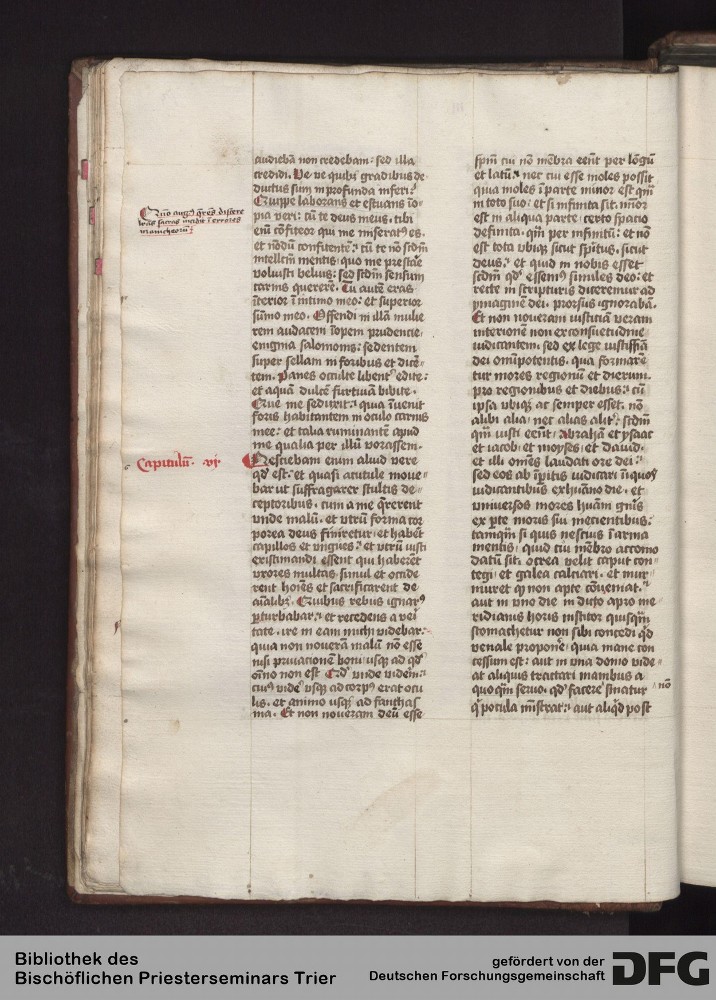 audiebā non credebam: sed illa
credidi. Ve ve quibꝫ gradibus de
ductus sum in profunda inferi:
Quippe laborans et estuans īo-
pia veri: cū te deus meus, tibi
enī cōfiteor qui me miserat9 es.
et nōdū confitentē: cū te nō scdm
intellcm mentis, quo me prestāe
voluisti beluis: sed scdm sensum
carnis quererē. Tu autē eras
īterior ītimo meo: et superior
sūmo meo. Offendi in illā mulie
rem audacem īopem prudencie.
enigma salomonis: sedentem
super sellam in foribus et dicē-
tem. Panes occulte libent9 edite:
et aquā dulcē furtivā bibite.
Que me seduxit: quia īvenit
foris habitantem in oculo carnis
mee: et talia ruminantē apud
me qualia per illū vorassem.
Capitulū. vj.
Nesciebam enim aliud vere
qd est. et quasi acutule move-
bar ut suffragarer stultis de-
ceptoribus. cum a me q̄rerent
unde malū. et utrū forma cor
porea deus finiretur: et haberꝫ
capillos et ungues. et utrū iusti
existimandi essent qui haberēt
uxores multas simul et occide
rent hoīes et sacrificarent de
aīalibꝫ. Quibus rebus ignar9
perturbabar: et recedens a veri
tate, ire in eam michi videbar.
quia non noverā malū nō esse
nisi privacionem boni usqꝫ ad qd
oīno non est. Qd unde viderem:
cui9 vidē usqꝫ ad corp9 erat ocu
lis. et animo usqꝫ ad fantas
ma. Et non noveram deū esse
spm cui nō mēbra eēnt per lōgū
et latū: nec cui esse moles possit
quia moles ī parte minor est qm̄
in toto suo: et si infinita sit. minor
est in aliqua parte certo spacio
definita. qm̄ per infinitū: et nō
est tota ubiqꝫ sicut spūs, sicut
deus. et quid in nobis esset
scdm qd essem9 similes deo: et
recte in scripturis diceremur ad
ymaginē dei. prorsus ignorabā.
Et non noveram iusticiā veram
interiorem non ex consuetudine
iudicantem. sed ex lege iustissīa
dei om̄ipotentis. qua formarē
tur mores regionū et dierum.
pro regionibus et diebus: cū
ipsa ubiqꝫ ac semper esset. nō
alibi alia. nec alias alit9. scdm
qm̄ iusti eēnt. Abrahā et ysaac
et iacob. et moyses et david.
et illi om̄es laudati ore dei:
sed eos ab īpitis iudicari īiquos
iudicantibus ex huāno die. et
universos mores huām gn̄is
ex pte moris sui mecientibus:
tamqm̄ si quis nescius ī arma
mentis. quid cui mēbro accomo
datū sit. ocrea velit caput con
tegi. et galea calciari. et mur
muret q non apte cōveniat.
aut in uno die in dicto a pro me
ridianis horis institor quisqm̄
stomachetur non sibi concedi qd
venale proponē. quia mane con
cessum est: aut in una domo vide
at aliquis tractari manibus a
quoqm̄ servo. qd facere sinatur nō
q pocula mīstrat: aut aliqd post
Bibliothek des
Bischöflichen Priesterseminars Trier
gefördert von der
Deutschen Forschungsgemeinschaft
DFG